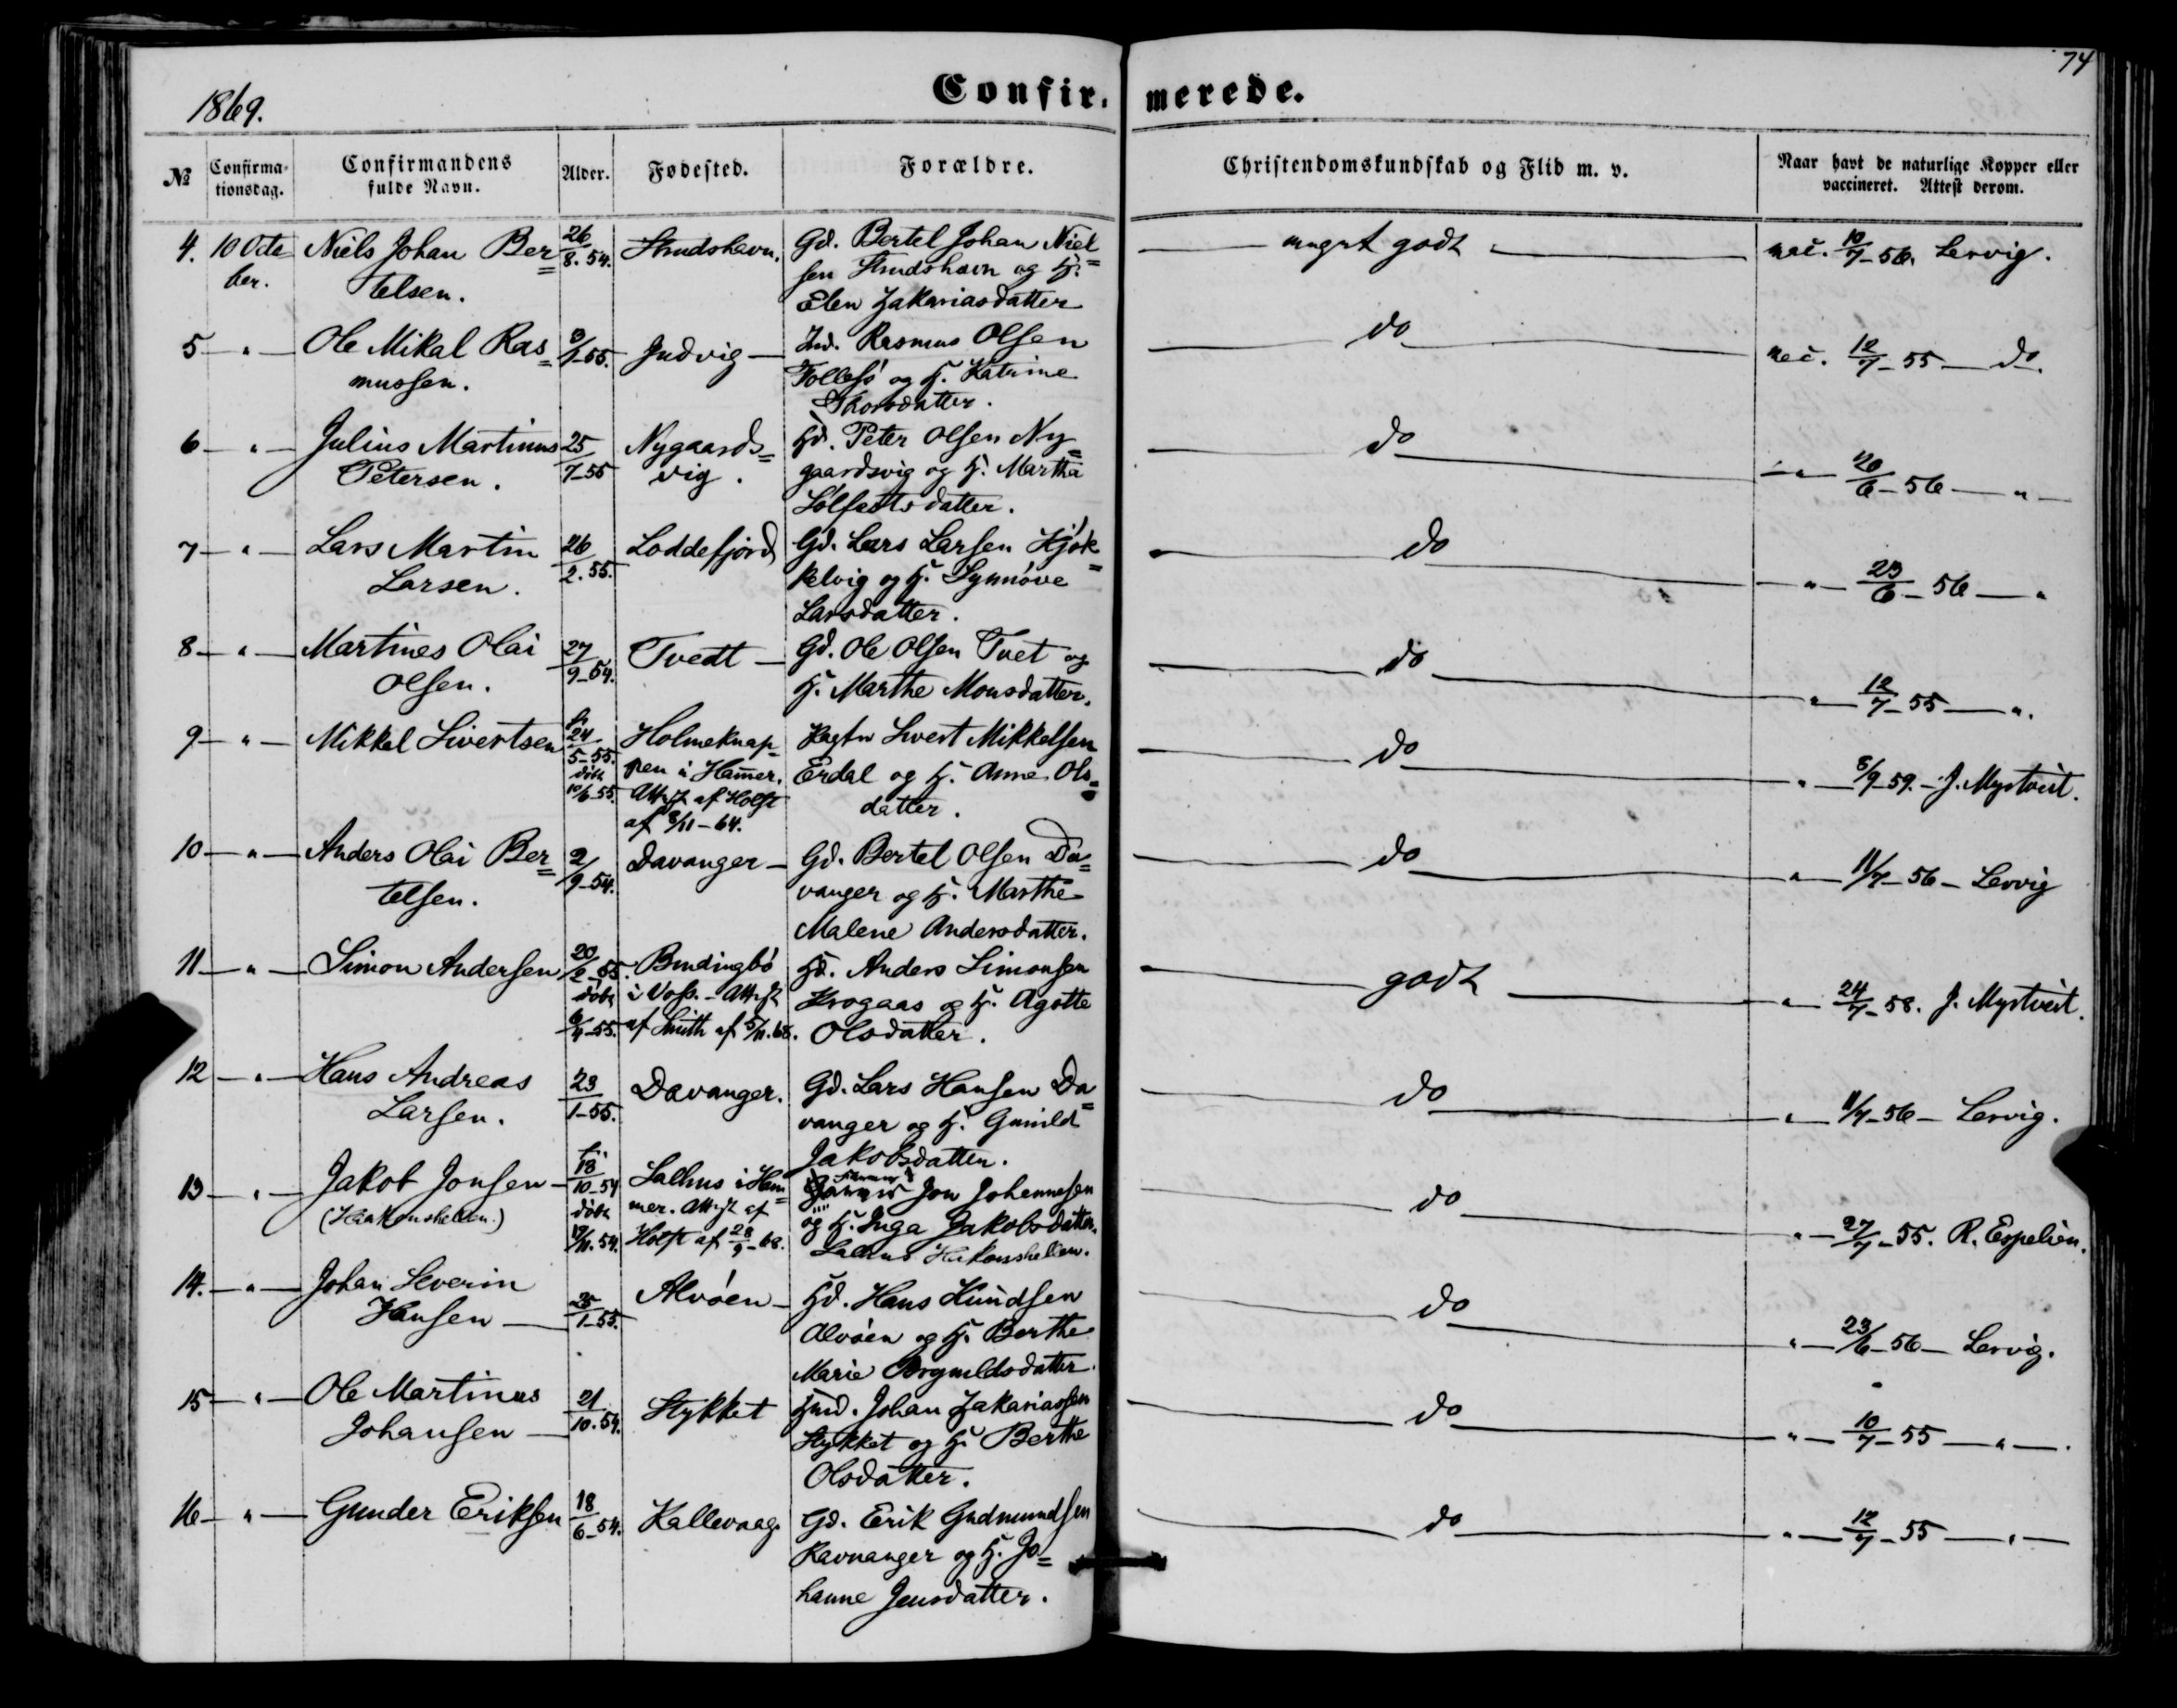 74
1869.
Confir- merede.
№ Confirma-tionsdag. Confirmandens fulde Navn. Alder. Fødested. Forældre. Christendomskundskab og Flid m. v. Naar havt de naturlige Kopper eller vaccineret. Attest derom.
4. 10 Octo- Niels Johan Ber= 26/8. 54. Strudshavn. Gd. Bertel Johan Niel= meget godt vac. 10/7-56. Lervig.
ber. telsen. sen Strudshavn og H.
Elen Zakariasdatter
5 — " — Ole Mikal Ras= 3/1-55. Indvig — Ind. Rasmus Olsen do vac. 12/7-55 — do.
mussen. Follesø og H. Katrine
Thorsdatter.
6 — " — Julius Martinus 25/7-55 Nygaards= Hd. Peter Olsen Ny= do — " — 20/6-56 — " —
Petersen. vig. gaardsvig og H. Martha
Sølfestsdatter.
7 — " — Lars Martin 26/2. 55. Loddefjord Gd. Lars Larsen Kjøk= do — " — 23/6-56 — "
Larsen. kelvig og H. Synnøve
Larsdatter.
8 — " — Martines Olai 27/9-54. Tvedt — Gd. Ole Olsen Tvet og do " — 12/7-55 — ".
Olsen. H. Marthe Monsdatter.
9 — " — Mikkel Sivertsen f. 24/5-55. Holmeknap- Sivert Mikkelsen do " — 8/9-59. — J. Myrtveit.
døbt pen i Hamer. Erdal og H. Anne Ols=
10/6-55. Attest af Holst datter.
af 8/11-64.
10 — " — Anders Olai Ber= 2/9-54. Davanger — Gd. Bertel Olsen Da= do " — 11/7-56 — Lervig
telsen. vanger og H. Marthe
Malene Andersdatter.
11 — " — Simon Andersen 20/2-55. Hd. Anders Simonsen godt " — 24/7-58. J. Myrtveit.
døbt i Voss. — Attest Krogaas og H. Agotte
6/4-55. af Smith af 5/11. 68. Olsdatter.
12 — " — Hans Andreas 23/1-55. Davanger. Gd. Lars Hansen Da= do " — 11/7-56 — Lervig.
Larsen. vanger og H. Gunild
Jakobsdatter.
13 — " — Jakob Jonsen — f. 18/10-54 Salhus i Ham= Jon Johannesen do " — 27/7-55. R. Espelien.
(Haakonshellen.) døbt mer. Attest af og H. Inga Jakobsdatter
19/11. 54. Holst af 28/9-68. Salhus Hakonshellen.
14. — " — Johan Severin 25/1-55. Alvøen — Hd. Hans Knudsen do " — 23/6-56 — Lervig.
Hansen — Alvøen og H. Berthe
Marie Brynildsdatter.
15 — " — Ole Martinus 21/10. 54. Stykket Hmd. Johan Zakariassen do " — 10/7-55 — " —.
Johansen — Stykket og H. Berthe
Olsdatter.
16 — " — Gunder Eriksen 18/6-54. Kallevaag. Gd. Erik Gudmundsen do " — 12/7-55 — " —
Ravnanger og H. Jo=
hanne Jensdatter.